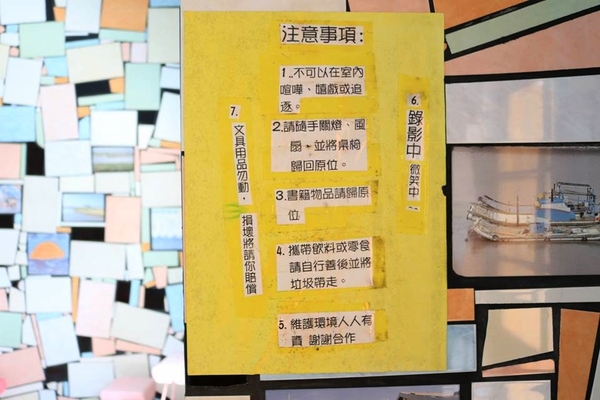 注意事項:
1.不可以在室內
喧嘩、嬉戲或追
逐。
2.請隨手關燈、風
扇，並將桌椅
歸回原位。
3.書籍物品請歸原
位
4.攜帶飲料或零食
請自行善後並將
垃圾帶走。
5.維護環境人人有
責 謝謝合作
6.錄影中 微笑中！
7.文具用品勿動，損壞將請你賠償